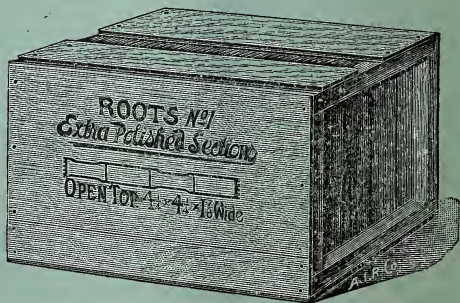 ROOTS No1
Extra Polished Sections
OPEN TOP 4¼ x 4¼ x 1⅞ Wide
A.I.R. Co.